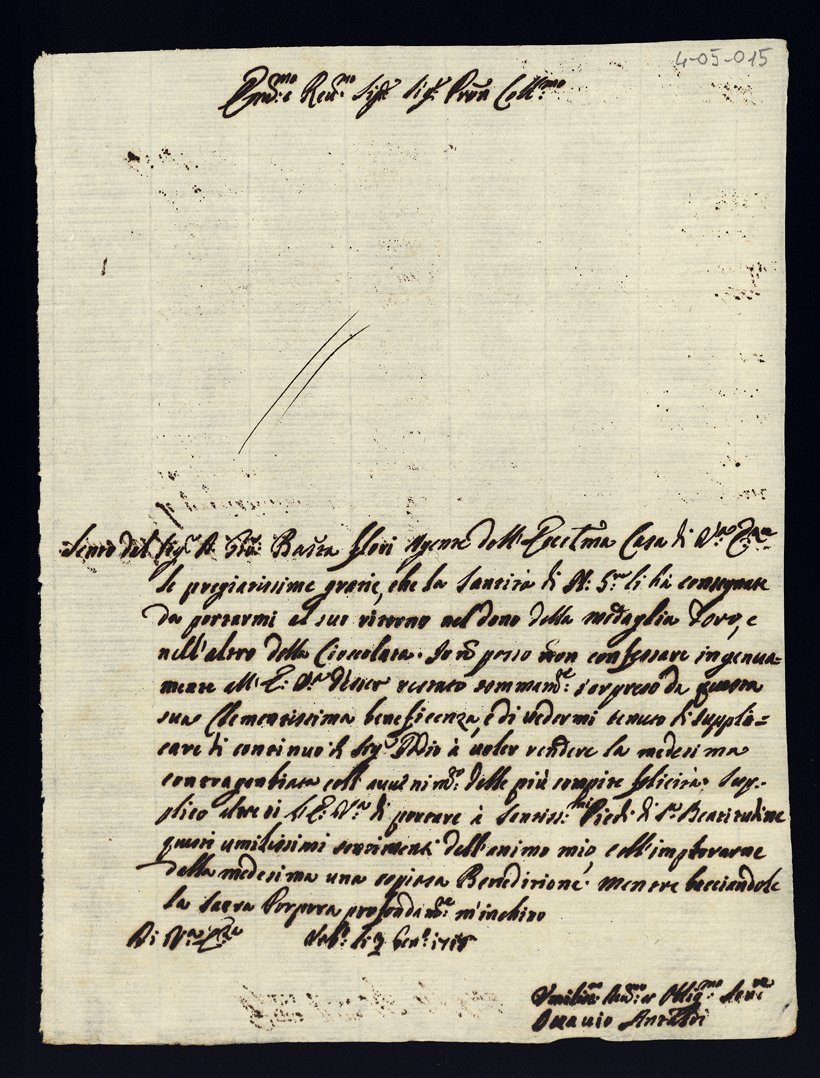 4-05-015
Em.mo e Rev.mo Sig.r Sig.r Pron Coll.mo
Sento dal Sig.r D. Gio: Batta Flori Agente dell'Eccel.ma Casa di V.ra Em.za
le pregiatissime grazie, che la Santità di N. S.re li hà consegnate
da portarmi al suo ritorno nel dono della medaglia d'oro, e
nell'altro della Cioccolata. Io nō posso non confessare ingenua=
mente all'E. V.ra d'esser restato sommam.te sorpreso da questa
sua Clementissima beneficenza, e di vedermi tenuto di suppli=
care di continuo il Sig.r Iddio à voler rendere la medesima
contragambiata coll' delle più compite felicità. Sup-
plico altresi l'E. V.ra di portare à Santiss.mi Piedi di S.a Beatitudine
questi umilissimi sentimenti dell'animo mio, coll'implorarne
dalla medesima una copiosa Benedizione. Mentre bacciandole
la Sacra Porpora profondam.te m'inchino
Di V.ra Em.za Gen.o
Umiliss.mo Dev.mo et Oblig.mo Ser.re
Ottavio